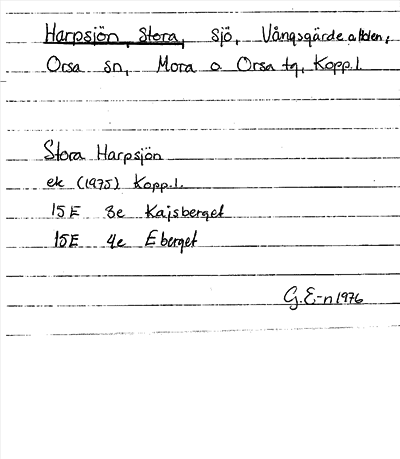 Harpsjön, Stora, sjö, Vångsgärde
Orsa sn, Mora o Orsa tg, Kopp.l.
Stora Harpsjön
ek (1975) Kopp.l.
15E 3e Kajsberget
15E 4e Eberget
G.E-n 1976